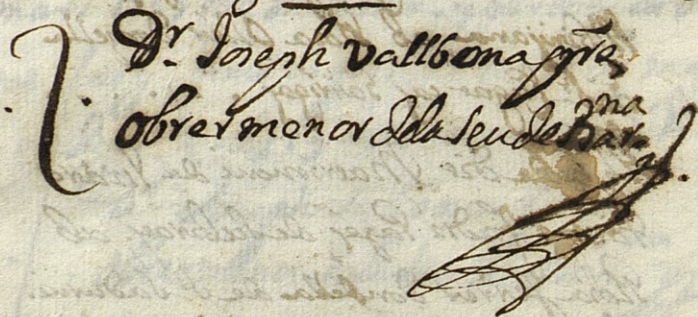 Dr. Joseph Vallbona pre,
Obrer menor dela seu de Bar.na